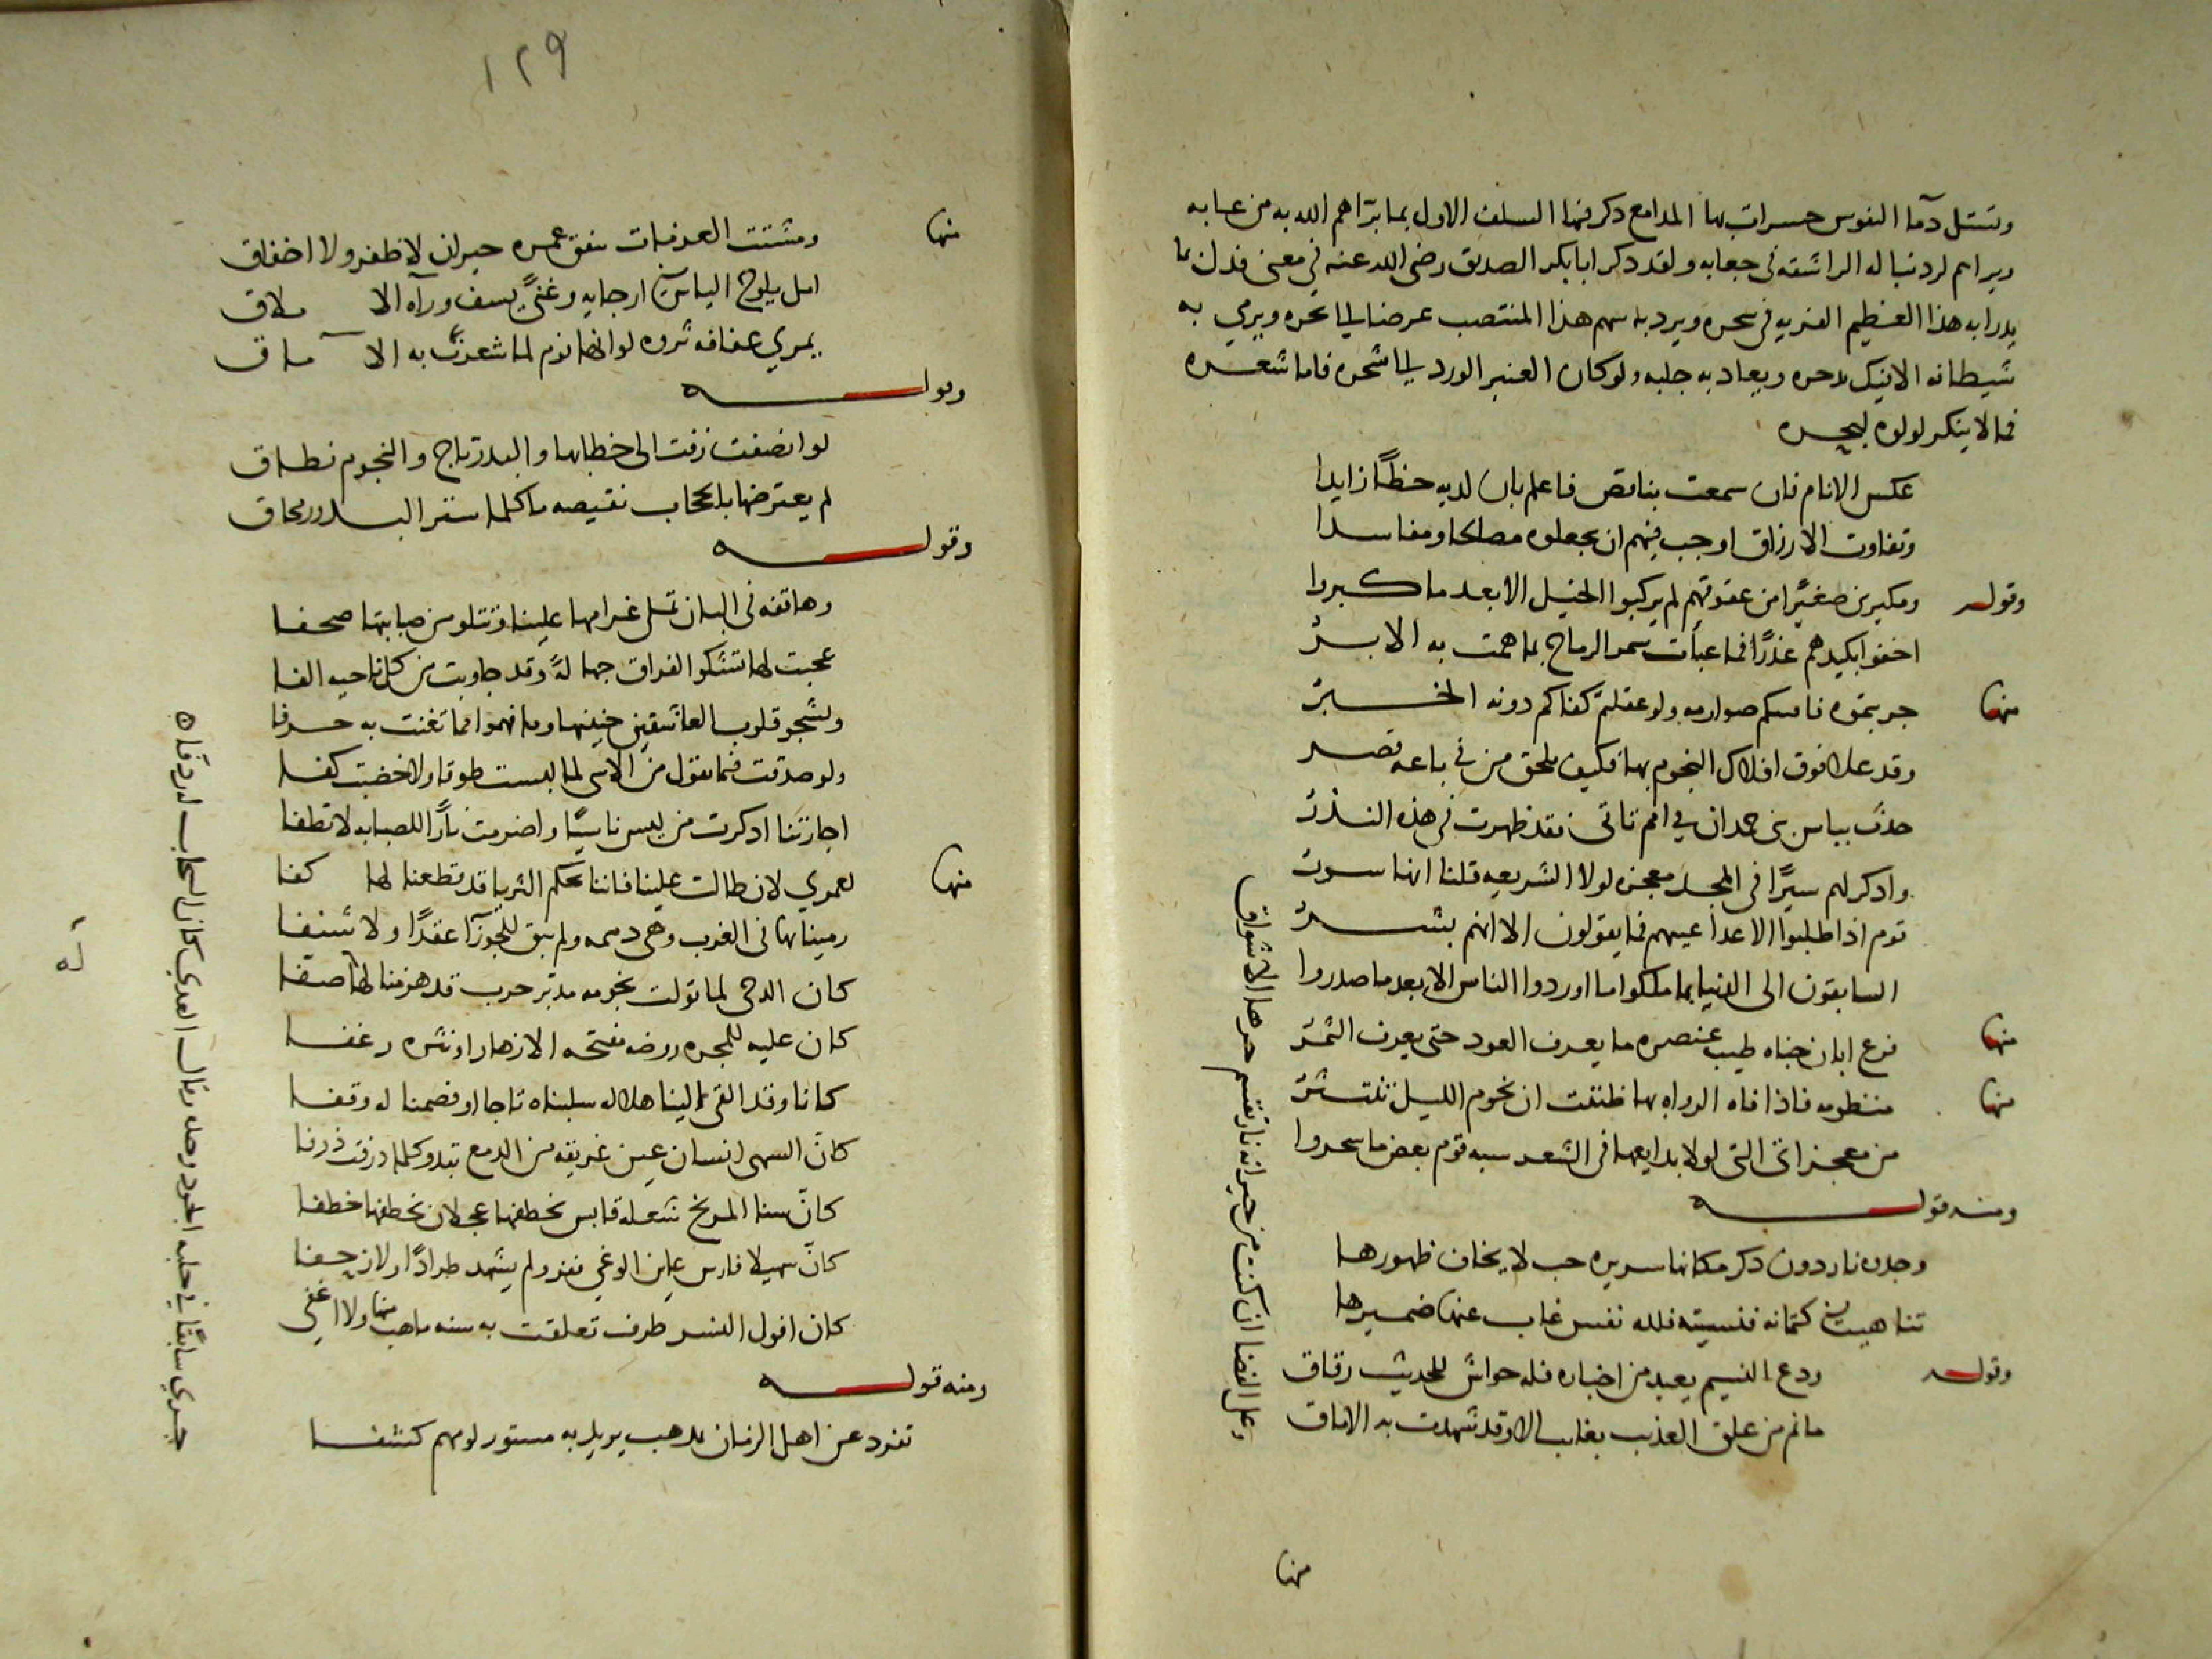 وتستل دمآ النفوس حسرات بها المدامع ذكر فيها السلف الاول بما برّاهم الله به من عابه
لرد نباله الراشقه في جعابه ولقد ذكر ابابكر الصديق رضى الله عنه في معنى فدك بما
يدرا به هذا العظيم الفريه في نحره ويرد به سهم هذا المنتصب عرضا الى نحره ويرمي به
شيطانه ويعاد به جلبه ولو كان العنبر الورد الى شحره فاما شعره
فما لا ينكر لولوه لبحره
عكس الانام فان سمعت بناقص فاعلم بان لديه حظًا زايدا
وتفاوت الارزاق اوجب فيهم ان يجعلوه مصلحا ومفاسدا
وقوله ومكبرين صغيرًا من عقوقهم لم يركبوا الخيل الا بعد ما كبروا
اخفوا بكيدهم غدرًا فما عبأت سمر الرماح بما همت به الابرُ
منها جربتموه فافنتكم صوارمه ولو عقلتم كفاكم دونه الخبرُ
وقد علا فوق افلاك النجوم بها فكيف يلحق من في باعه قصر
حذّت بباس بني حمدان في امم تاتى فقد ظهرت في هذه النذرُ
واذكر لهم سيرًا في المجد معجزه لولا الشريعه قلنا انها سورُ
قوم اذا طلبوا الاعدا عيبهم فما يقولون الا انهم بشرُ
السابقون الى الدنيا بما ملكوا ما اوردوا الناس الا بعد ما صدروا
منها فرع ابان جناه طيب عنصره ما يعرف العود حتى يعرف الثمرُ
منها منظومه فاذا فاه الرواه بها ظننت ان نجوم الليل تنتشرُ
من معجزاتى التى لولا بدايعها في الشعر شبه قوم بعض ما سحروا
ومنه قوله
وجدناه دون ذكر مكانها سريره حب لا يخاف ظهورها
تناهيت في كتمانه فنسيته فلله نفس غاب عنها ضميرها
وقوله ودع النسيم يعيد من اخباره فله حواش للحديث رقاق
ما نم من علق العذيب بغايب الا وقد شهدت به الافاق
وعلى الغضا ان كنت من جيرانه نار تقسم حرها الاشواق
منها
١٢٩
منها ومشتت العزمات ينفق عمره حيران لا ظفر ولا اخفاق
امل يلوح الياس في ارجايه وغنىً يسف ورآه الاملاق
يمري عفافه ثروه لو انها نوم لما شعرت به الاماق
وقوله
لو انصفت زفت الى خطابها والبدر تاج والنجوم نطاق
لم يعترضها بالحجاب نقيصه ما كلما ستر البدور محاق
وقوله
وهاتفه فى البان تملى غرامها علينا وتتلو من صبابتها صحفا
عجبت لها تشكو الفراق جهالةً وقد جاوبت من كل ناحيه الفا
ويشجو قلوب العاشقين حنينها وما فهموا مما تغنت به حرفا
ولو صدقت فيما تقول من الاسى لما لبست طوقا ولا خضبت كفا
اجارتنا اذكرت من ليس ناسيًا واضرمت نارًا للصبابه لا تطفا
منها لعمري لان طالت علينا فاننا بحكم الثريا قد قطعنا لها كفا
رمينا بها فى الغرب وهى دميمه ولم نبق للجوزآ عقدًا ولا شنفا
كان الدجى لما تولت نجومه مدبّر حرب قد هزمنا لها صفا
كان عليه للمجره روضه مفتحه الازهار او نثره زغفا
كانا وقد القى الينا هلاله سلبناه تاجا او فصمنا له وقفا
كانّ السهى انسان عين غريقه من الدمع تبدو كلما ذرفت ذرفا
كانّ سنا المريخ شعله قابس تخطفها عجلان يخطفها خطفا
كانّ سهيلا فارس عاين الوغى ففر ولم يشهد طرادًا ولا زحفا
كان افول النسر طرف تعلقت به سنه ما هب منها ولا اغفى
ومنه قوله
تفرد عن اهل الزمان بمذهب يريك به مستور لومهم كشفا
جري سابقًا في حلبه الجود وحده وقال العدى كان السحاب له ردفا ه
له